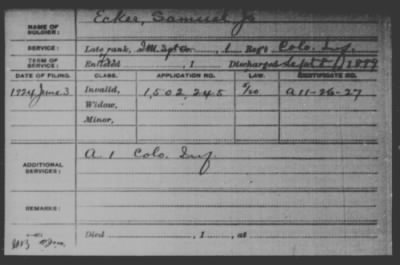 NAME OF SOLDIER: Ecker, Samuel Jr
SERVICE: Late rank, Sgt Co. , 1 Reg't Colo. Inf.
TERM OF SERVICE: Enlisted , 1 Discharged Sept 8, 1899
DATE OF FILING. CLASS. APPLICATION NO. LAW. CERTIFICATE NO.
1924 June 3 Invalid, 1,502,245 A11-26-27
Widow,
Minor,
ADDITIONAL SERVICES: A. 1 Colo. Inf.
REMARKS:
Died , 1 , at